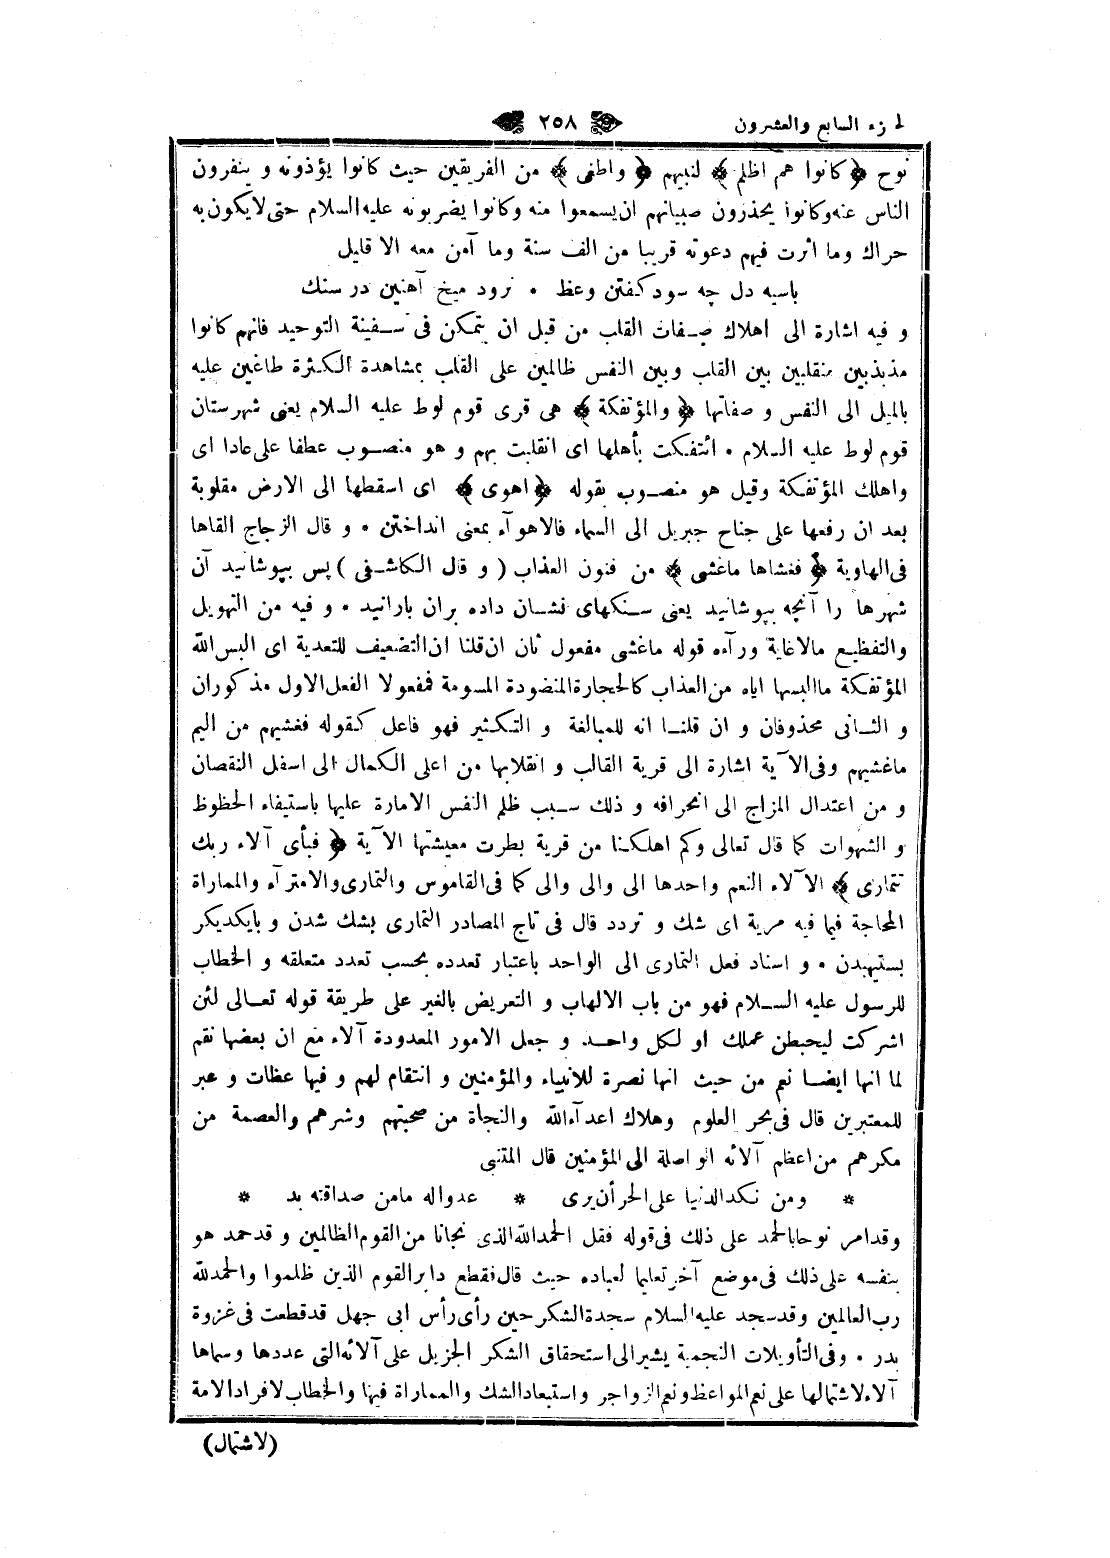 لجزء السابع والعشرون ٢٥٨
نوح ﴿ كانوا هم اظلم ﴾ لنبيهم ﴿ واطغى ﴾ من الفريقين حيث كانوا يؤذونه و ينفرون
الناس عنه وكانوا يحذرون صبيانهم ان يسمعوا منه وكانوا يضربونه عليه السلام حتى لا يكون به
حراك وما اثرت فيهم دعوته قريبا من الف سنة وما آمن معه الا قليل
باسيه دل چه سود كفتن وعظ • نرود ميخ آهنين در سنك
و فيه اشارة الى اهلاك صفات القلب من قبل ان يتمكن فى سفينة التوحيد فانهم كانوا
مذبذبين منقلبين بين القلب وبين النفس ظالمين على القلب بمشاهدة الكثرة طاغين عليه
بالميل الى النفس و صفاتها ﴿ والمؤتفكة ﴾ هى قرى قوم لوط عليه السلام يعنى شهرستان
قوم لوط عليه السلام • ائتفكت بأهلها اى انقلبت بهم و هو منصوب عطفا على عادا اى
واهلك المؤتفكة وقيل هو منصوب بقوله ﴿ اهوى ﴾ اى اسقطها الى الارض مقلوبة
بعد ان رفعها على جناح جبريل الى السماء فالاهوآء بمعنى انداختن • و قال الزجاج القاها
فى الهاوية ﴿ فغشاها ماغشى ﴾ من فنون العذاب ( و قال الكاشفى ) پس بپوشانيد آن
شهرها را آنچه بپوشانيد يعنى سنكهاى نشان داده بران بارانيد • و فيه من التهويل
والتفظيع مالاغاية ورآءه قوله ماغشى مفعول ثان ان قلنا ان التضعيف للتعدية اى البس الله
المؤتفكة ماالبسها اياه من العذاب كالحجارة المنضودة المسومة فمفعولا الفعل الاول مذكوران
و الثانى محذوفان و ان قلنا انه للمبالغة و التكثير فهو فاعل كقوله فغشيهم من اليم
ماغشيهم وفى الآية اشارة الى قرية القالب و انقلابها من اعلى الكمال الى اسفل النقصان
و من اعتدال المزاج الى انحرافه و ذلك سبب ظلم النفس الامارة عليها باستيفاء الحظوظ
و الشهوات كما قال تعالى وكم اهلكنا من قرية بطرت معيشتها الآية ﴿ فبأى آلاء ربك
تتمارى ﴾ الآلاء النعم واحدها الى والى والى كما فى القاموس والتمارى والامترآء والمماراة
المحاجة فيما فيه مرية اى شك و تردد قال فى تاج المصادر التمارى بشك شدن و بايكديكر
بستيهيدن • و اسناد فعل التمارى الى الواحد باعتبار تعدده بحسب تعدد متعلقه و الخطاب
للرسول عليه السلام فهو من باب الالهاب و التعريض بالغير على طريقة قوله تعالى لئن
اشركت ليحبطن عملك او لكل واحد و جعل الامور المعدودة آلاء مع ان بعضها نقم
لما انها ايضا نعم من حيث انها نصرة للانبياء والمؤمنين و انتقام لهم و فيها عظات و عبر
للمعتبرين قال فى بحر العلوم وهلاك اعدآءالله والنجاة من صحبتهم وشرهم والعصمة من
مكرهم من اعظم آلائه الواصلة الى المؤمنين قال المتنبى
* ومن نكد الدنيا على الحر أن يرى * عدوا له مامن صداقته بد *
وقد امر نوحا بالحمد على ذلك فى قوله فقل الحمدلله الذى نجانا من القوم الظالمين و قدحمد هو
بنفسه على ذلك فى موضع آخر تعليما لعباده حيث قال فقطع دابر القوم الذين ظلموا والحمدلله
رب العالمين وقد سجد عليه السلام سجدة الشكر حين رأى رأس ابى جهل قدقطعت فى غزوة
بدر • وفى التأويلات النجمية يشير الى استحقاق الشكر الجزيل على آلائه التى عددها وسماها
آلاء لاشتمالها على نعم المواعظ ونعم الزواجر واستبعاد الشك والمماراة فيها والخطاب لافراد الامة
(لاشتمال)